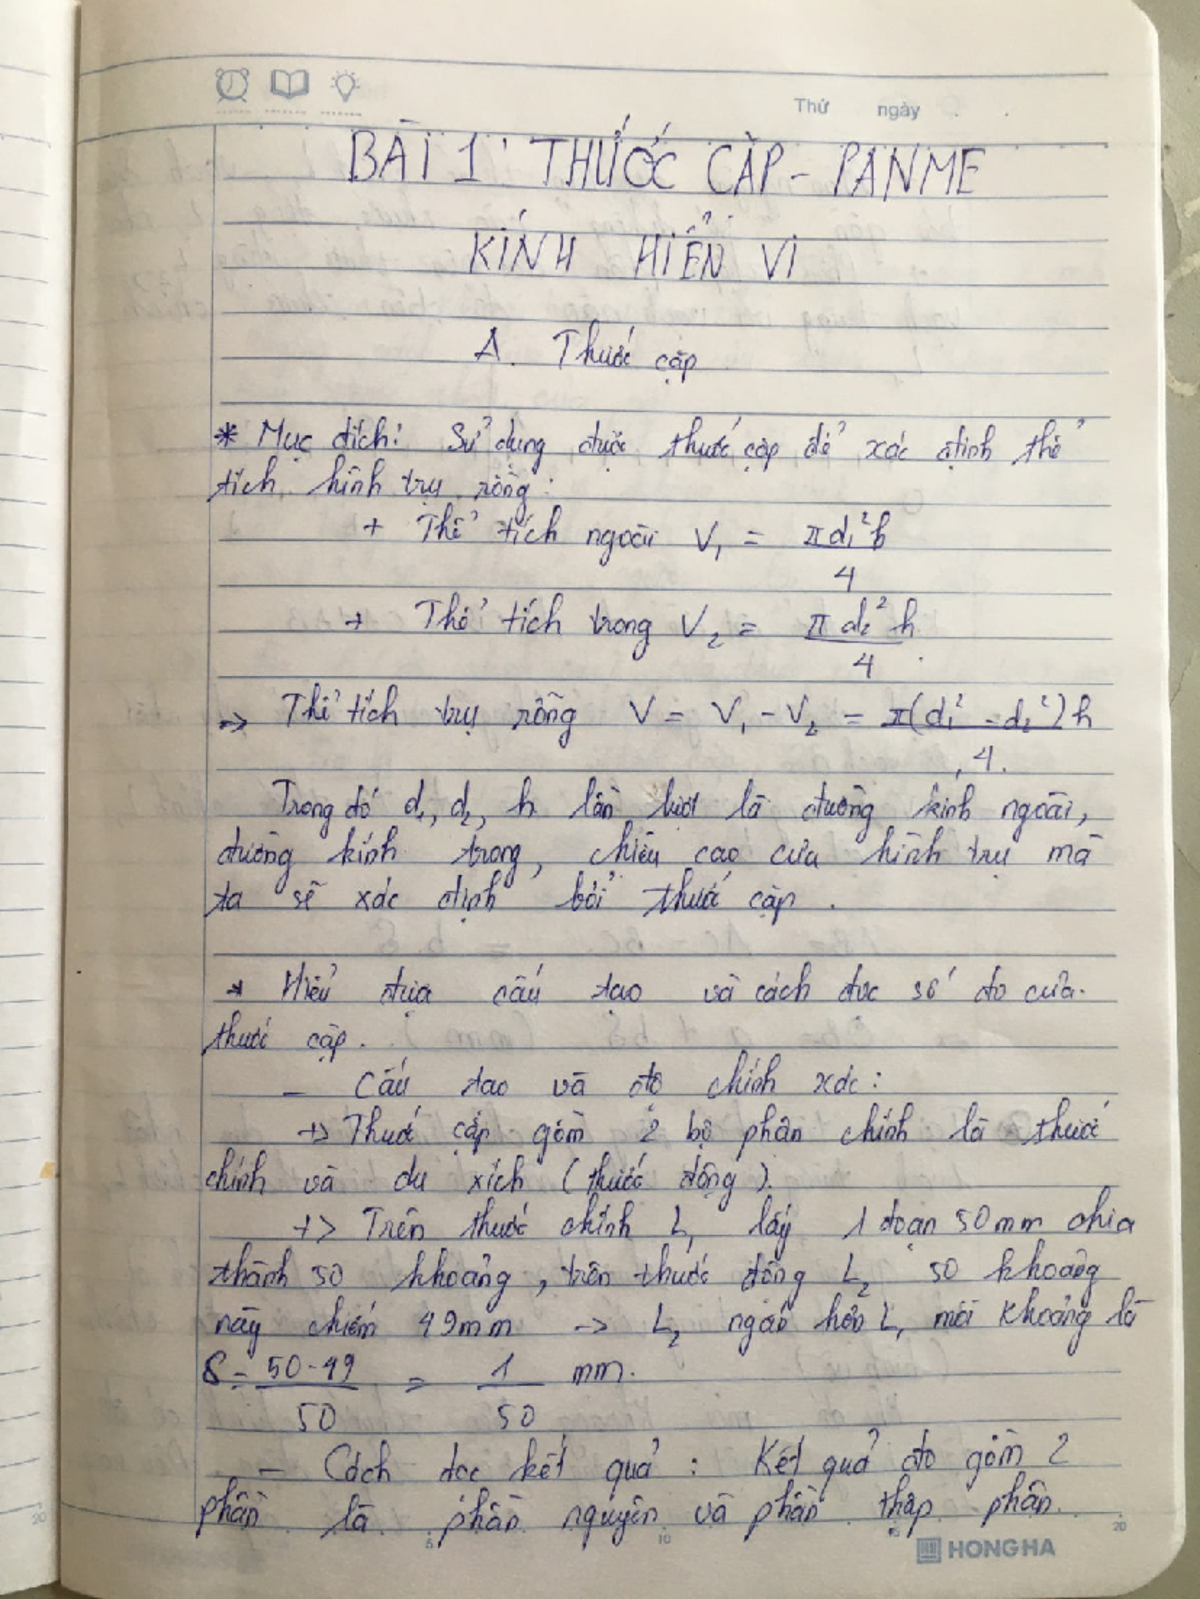 Thứ ngày
BÀI 1: THƯỚC CẶP - PANME
KÍNH HIỂN VI
A. Thước cặp
* Mục đích: Sử dụng được thước cặp để xác định thể
tích hình trụ rỗng:
+ Thể tích ngoài V₁ = πd₁²h / 4
+ Thể tích trong V₂ = πd₂²h / 4
=> Thể tích trụ rỗng V = V₁ - V₂ = π(d₁² - d₂²)h / 4.
Trong đó d₁, d₂, h lần lượt là đường kính ngoài,
đường kính trong, chiều cao của hình trụ mà
ta sẽ xác định bởi thước cặp.
* Hiểu được cấu tạo và cách đọc số đo của
thước cặp.
- Cấu tạo và độ chính xác:
+> Thước cặp gồm 2 bộ phận chính là thước
chính và du xích (thước động).
+> Trên thước chính L₁ lấy 1 đoạn 50mm chia
thành 50 khoảng, trên thước động L₂ 50 khoảng
này chiếm 49mm -> L₂ ngắn hơn L₁ mỗi khoảng là
δ = 50-49 / 50 = 1 / 50 mm.
- Cách đọc kết quả: Kết quả đo gồm 2
phần là phần nguyên và phần thập phân.
5 10 15 20
HONG HA
20